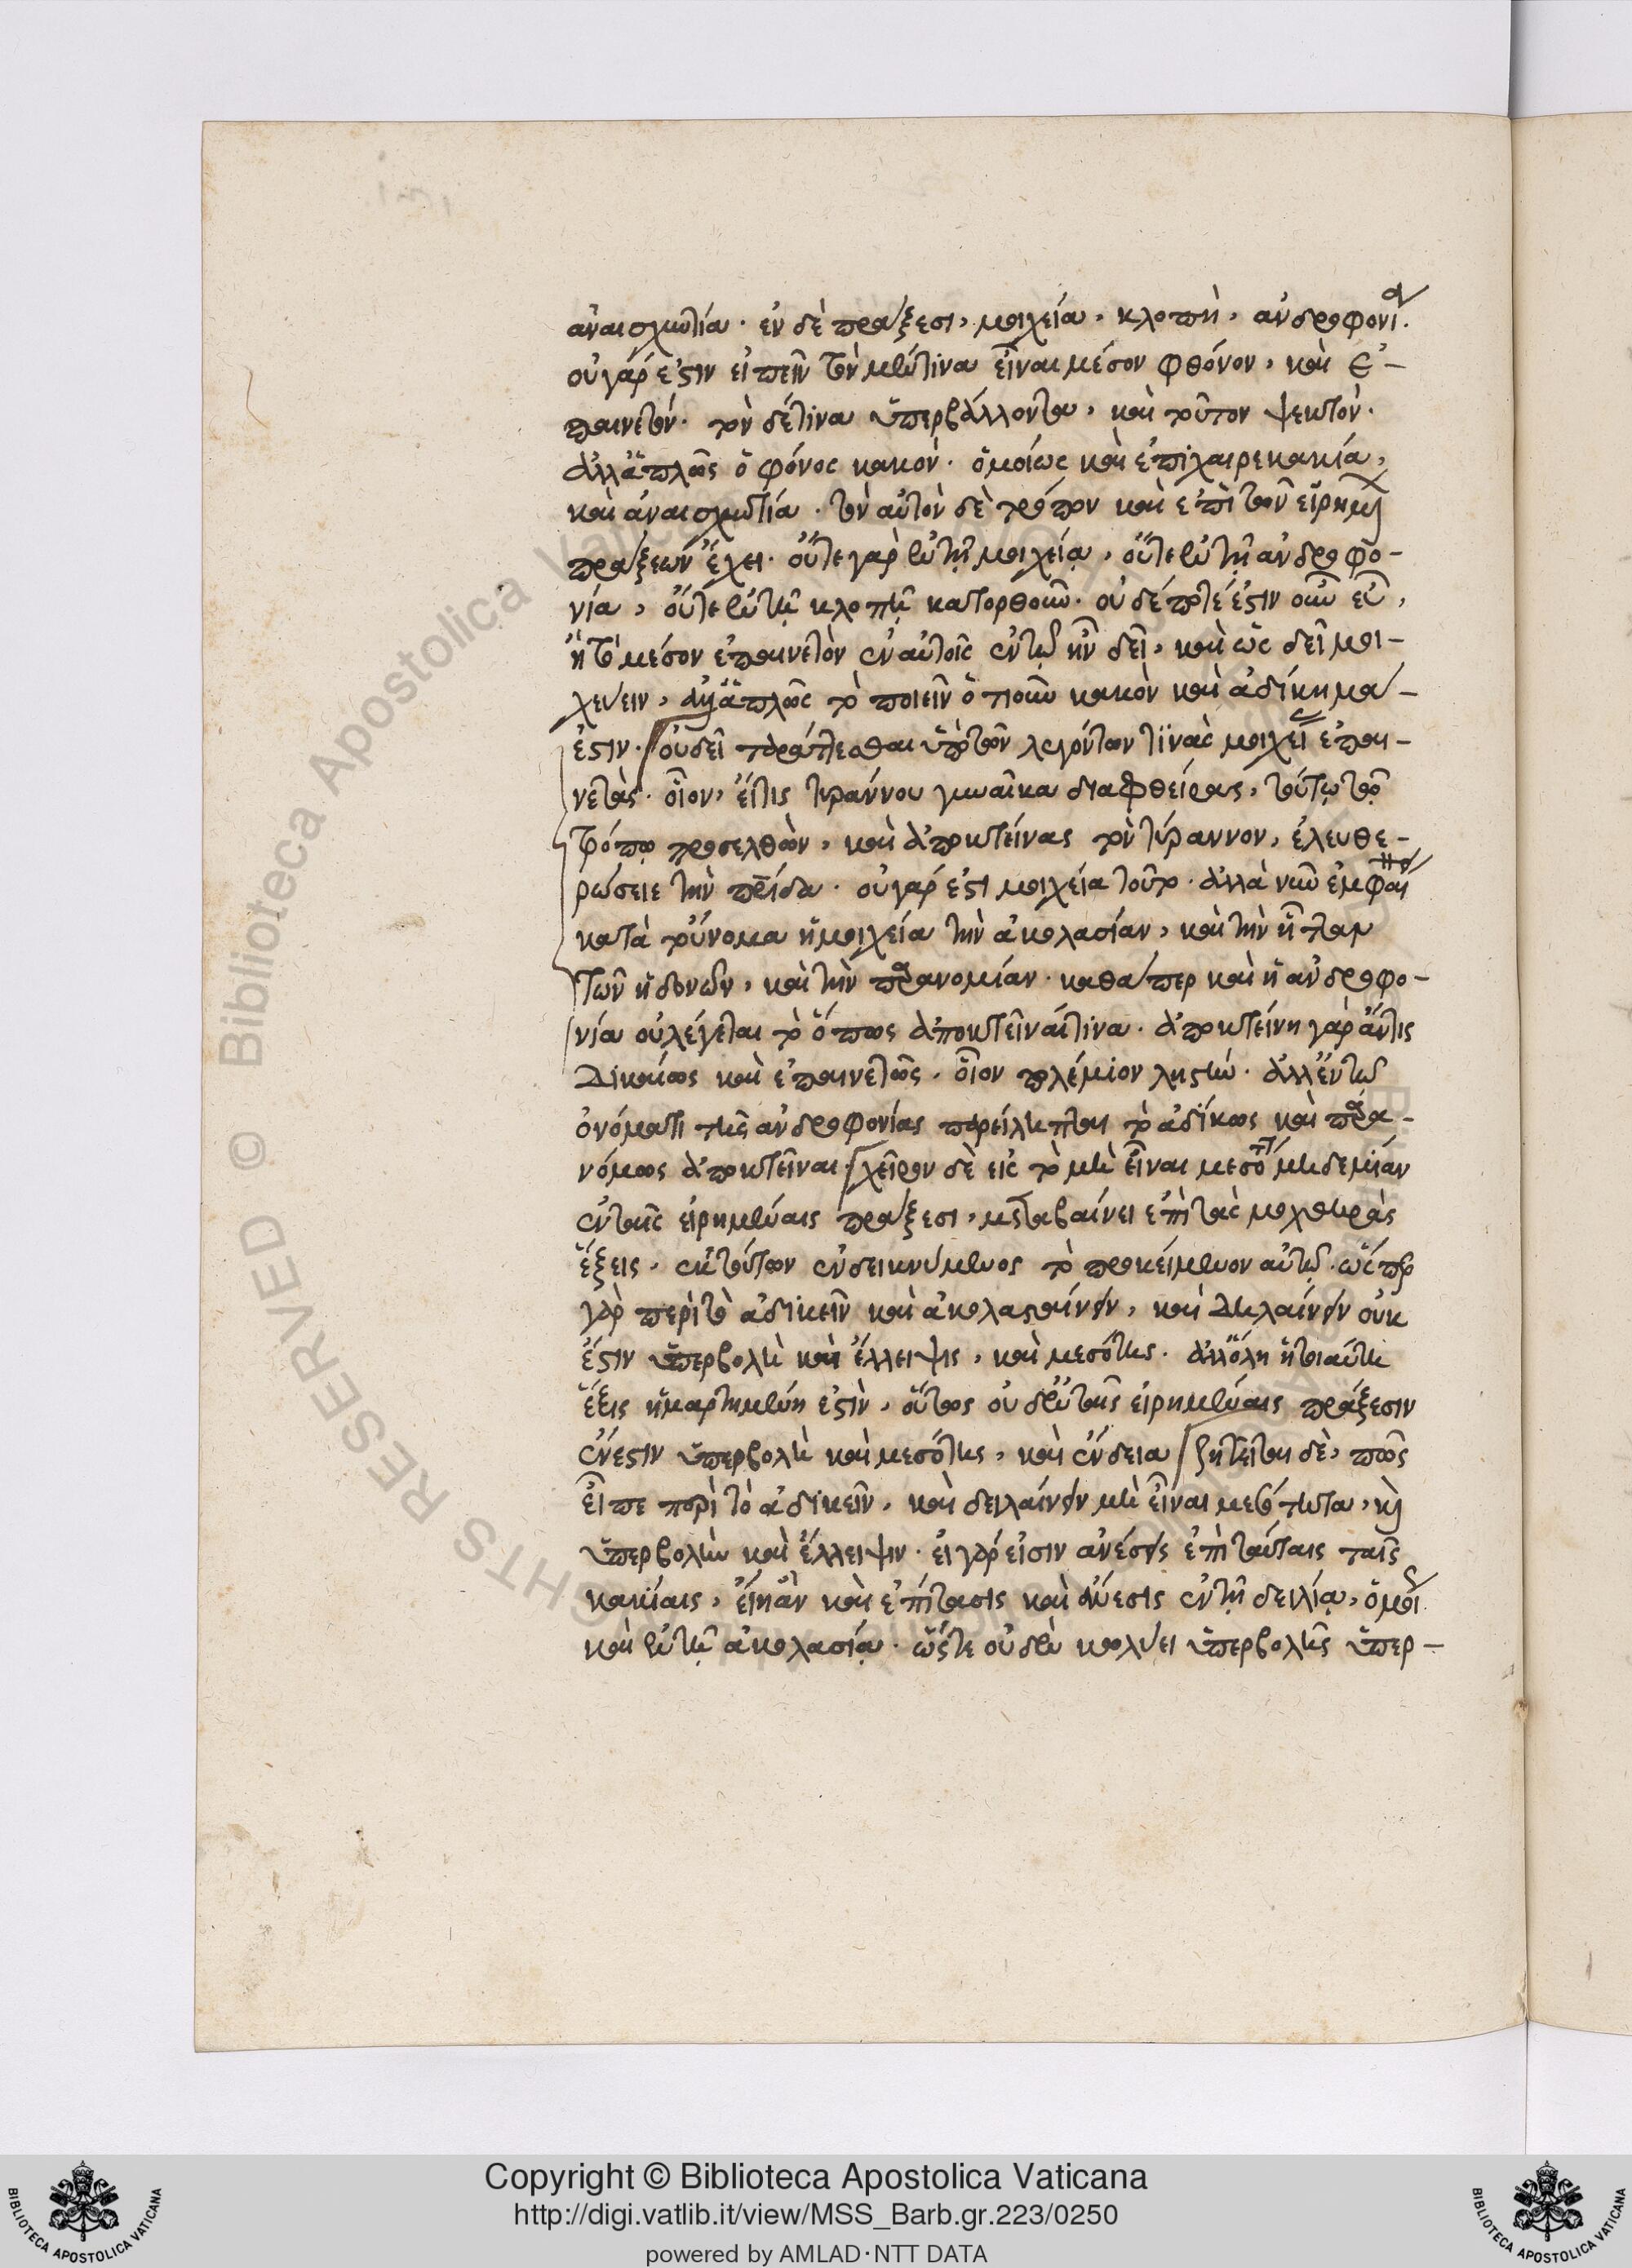 ἀναισχυντία· ἐν δὲ πράξεσι, μοιχεία, κλοπὴ, ἀνδροφονία.
οὐ γάρ ἐστιν εἰπεῖν τὸν μέν τινα εἶναι μέσον φθόνον, καὶ ἐ-
παινετόν· τὸν δέ τινα ὑπερβάλλοντα, καὶ τοῦτον ψεκτόν.
ἀλλ' ἁπλῶς ὁ φόνος κακόν· ὁμοίως καὶ ἐπιχαιρεκακία,
καὶ ἀναισχυντία· τὸν αὐτὸν δὲ τρόπον καὶ ἐπὶ τῶν εἰρημένων
πράξεων ἔχει· οὔτε γὰρ ἐν τῇ μοιχείᾳ, οὔτε ἐν τῇ ἀνδροφο-
νία, οὔτε ἐν τῇ κλοπῇ κατορθοῦν· οὐδέποτέ ἐστιν οὖν εὖ,
ἢ τὸ μέσον ἐπαινετὸν ἐν αὐτοῖς ἐν τῷ ἣν δεῖ, καὶ ὡς δεῖ μοι-
χεύειν, ἀλλ' ἁπλῶς τὸ ποιεῖν ὁτιοῦν κακὸν καὶ ἀδίκημα
ἐστιν· οὐ δεῖ ταράττεσθαι ὑπὸ τῶν λεγόντων τινὰς μοιχείας ἐπαι-
νετάς· οἷον, εἴ τις τυράννου γυναῖκα διαφθείρας, τούτῳ τῷ
τρόπῳ προσελθὼν, καὶ ἀποκτείνας τὸν τύραννον, ἐλευθε-
ρώσειε τὴν πρίδα· οὐ γάρ ἐστι μοιχεία τοῦτο· ἀλλὰ νῦν ἐμφαί
κατὰ τοὔνομα ἡ μοιχεία τὴν ἀκολασίαν, καὶ τὴν ἧτταν
τῶν ἡδονῶν, καὶ τὴν παρανομίαν· καθάπερ καὶ ἡ ἀνδροφο-
νία οὐ λέγεται τὸ ὅπως ἀποκτεῖναί τινα· ἀποκτείνῃ γὰρ ἄν τις
Δικαίως καὶ ἐπαινετῶς· οἷον πολέμιον λῃστήν· ἀλλ' ἐν τῷ
ὀνόματι τῆς ἀνδροφονίας περείληπται τὸ ἀδίκως καὶ παρα-
νόμως ἀποκτεῖναι· χεῖρον δὲ εἰς τὸ μὴ εἶναι μεσότητα μηδεμίαν
ἐν ταῖς εἰρημέναις πράξεσι, μεταβαίνει ἐπὶ τὰς μοχθηρὰς
ἕξεις, ἐκ τούτων ἐνδεικνύμενος τὸ προκείμενον αὐτῷ· ὥσπερ
γὰρ περὶ τὸ ἀδικεῖν καὶ ἀκολασταίνειν, καὶ Δειλαίνειν οὐκ
ἔστιν ὑπερβολὴ καὶ ἔλλειψις, καὶ μεσότης· ἀλλ' ὅλη ἡ τοιαύτη
ἕξις ἡμαρτημένη ἐστὶν, οὕτως οὐδὲ ἐν ταῖς εἰρημέναις πράξεσιν
ἔνεστιν ὑπερβολὴ καὶ μεσότης, καὶ ἔνδεια ζητεῖται δὲ, πῶς
εἶπε περὶ τὸ ἀδικεῖν, καὶ δειλαίνειν μὴ εἶναι μεσότητα, καὶ
ὑπερβολὴν καὶ ἔλλειψιν· εἰ γάρ εἰσιν ἀνέσεις ἐπὶ ταύταις ταῖς
κακίαις, εἴη ἂν καὶ ἐπίτασις καὶ ἄνεσις ἐν τῇ δειλίᾳ, ὁμοίως
καὶ ἐν τῇ ἀκολασίᾳ· ὥστε οὐδὲν κωλύει ὑπερβολῆς ὑπερ-
Copyright © Biblioteca Apostolica Vaticana
http://digi.vatlib.it/view/MSS_Barb.gr.223/0250
powered by AMLAD·NTT DATA